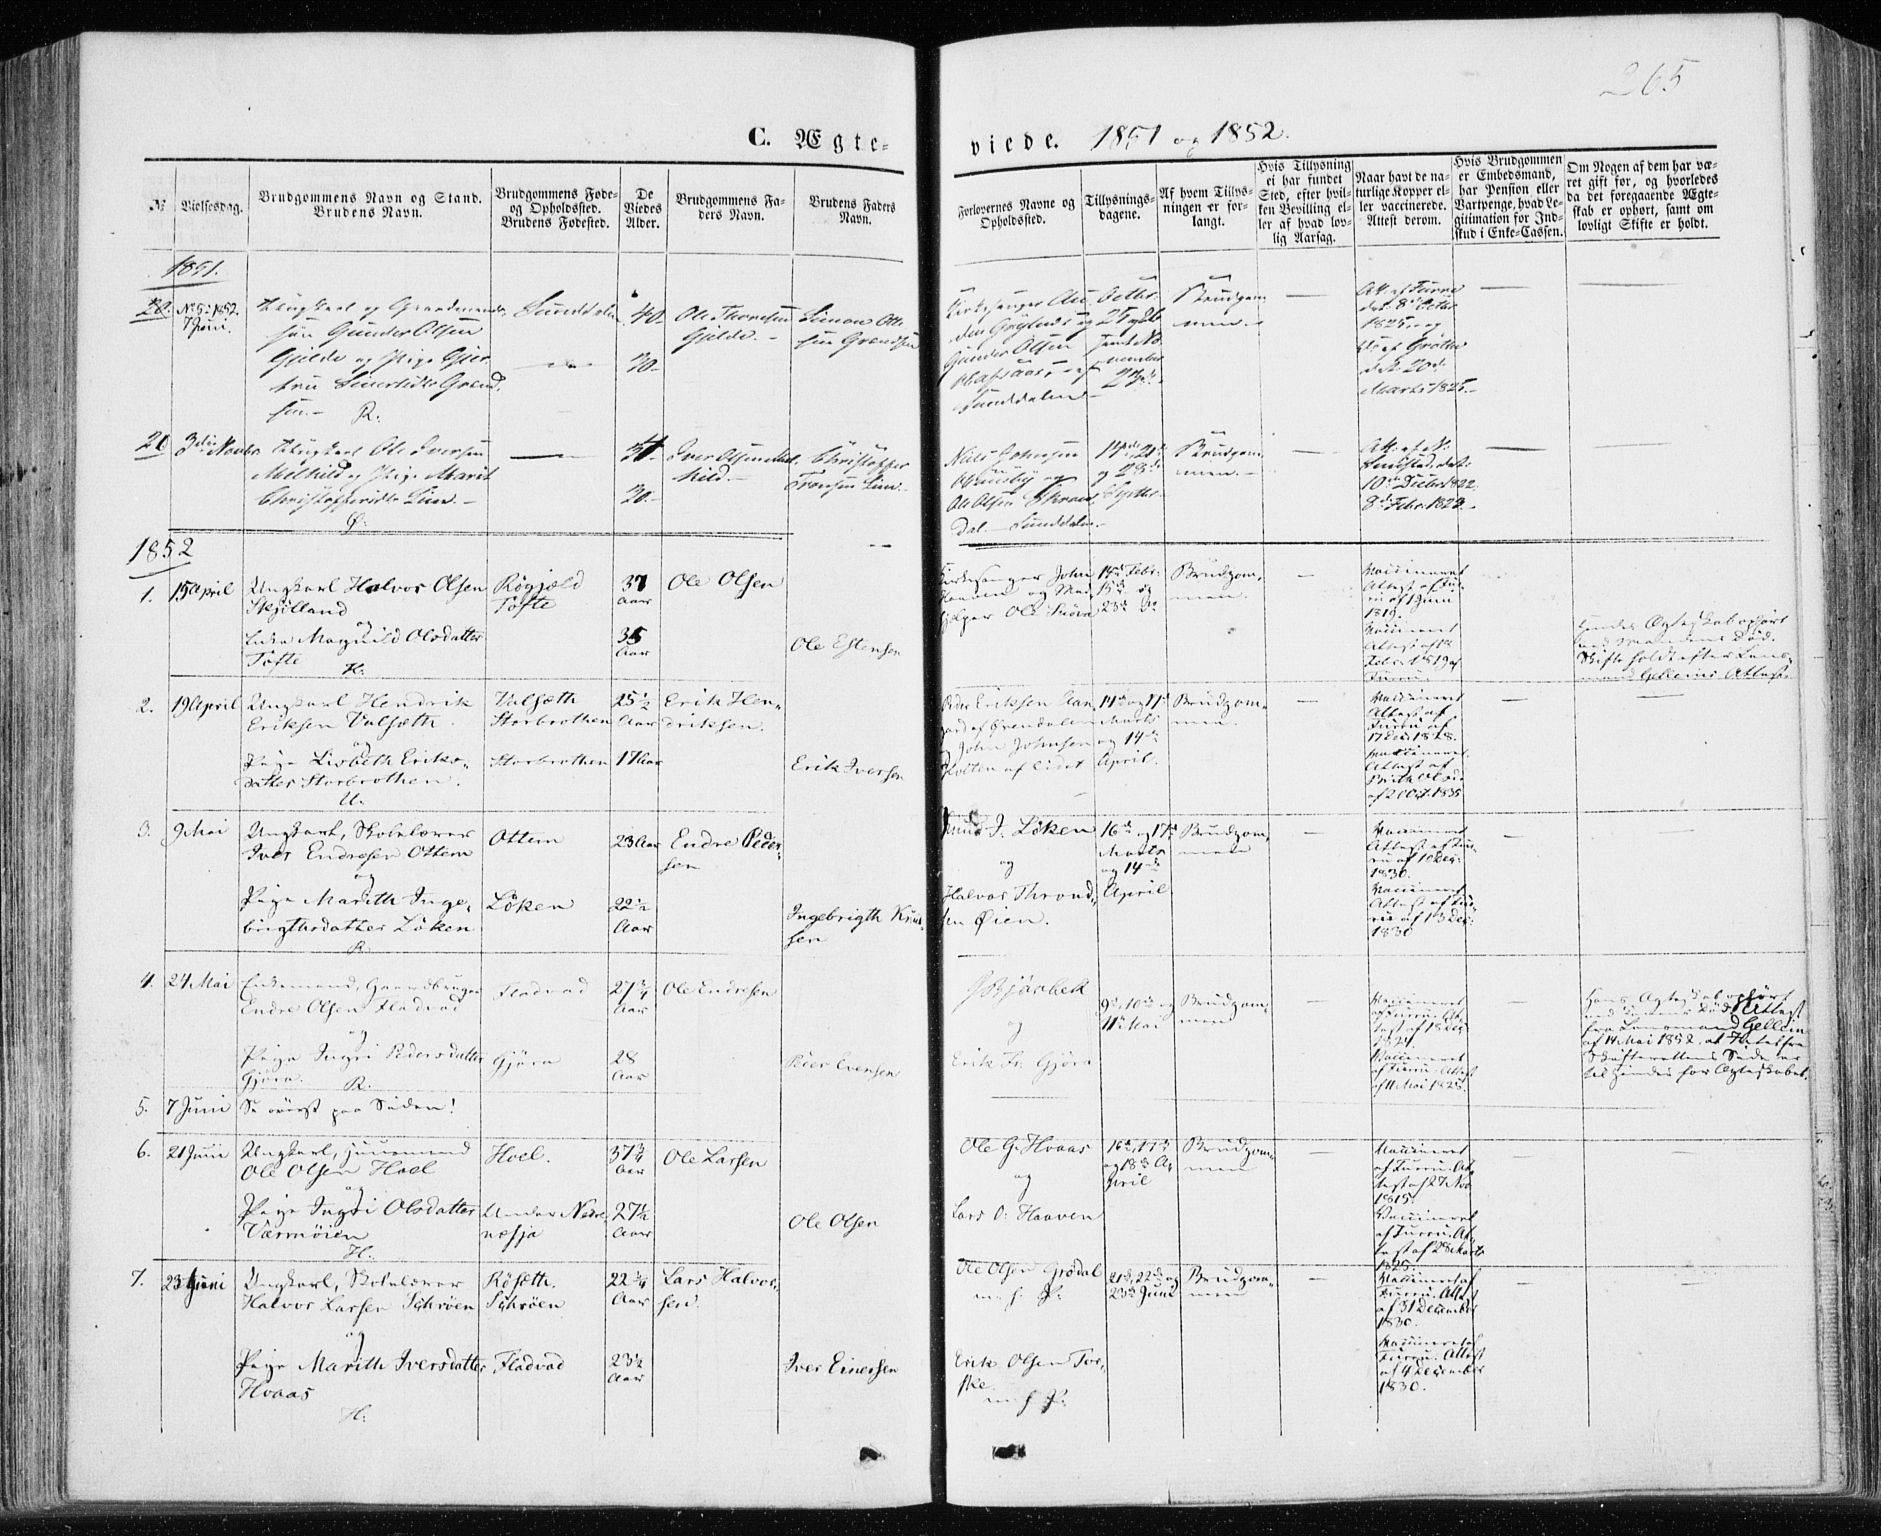 265
C. Ægte-
viede. 1851 og 1852.
№
Vielsesdag.
Brudgommens Navn og Stand.
Brudens Navn.
Brudgommens Føde-
og Opholdssted.
Brudens Fødested.
De
Viedes
Alder.
Brudgommens Fa-
ders Navn.
Brudens Faders
Navn.
Forlovernes Navne og
Opholdssted.
Tillysnings-
dagene.
Af hvem Tillys-
ningen er for-
langt.
Hvis Tillysning
ei har fundet
Sted, efter hvil-
ken Bevilling el-
ler af hvad lov-
lig Aarsag.
Naar havt de na-
turlige Kopper el-
ler vaccinerede.
Attest derom.
Hvis Brudgommen
er Embedsmand,
har Pension eller
Vartpenge, hvad Le-
gitimation for Ind-
skud i Enke-Cassen.
Om Nogen af dem har væ-
ret gift før, og hvorledes
da det foregaaende Ægte-
skab er ophørt, samt om
lovligt Skifte er holdt.
1851.
20.
No 5 - 1852.
7 Juni.
Ungkarl og Gaardmands
søn Gunder Olsen
Gjelde og Pige
R.
Sunddalen
40.
30.
Ole Thoresen
Gjelde.
Simon Ole
sen
Gunder Olsen
Sunddalen
Octbr.
25 og 26
samt No
vember
23
Brudgom
men.
Att. af Furru
det 8de Octbr
1825 og
20de
Marts 1825.
20
3die Novbr.
Ungkarl Ole Iversen
Melhild og Pige Marit
Christoffersdtr Lien.
Ø.
31
30.
Iver Olsen Mel
hild.
Christoffer
Tronsen Lien.
Niels Johnsen
Ole Olsen
dal. Sunddalen.
14de 21de
og 28de
Septbr.
Brudgom
men.
Att. af N.
10de Decbr 1822
8de Febr. 1823.
1852
1.
15 April
Ungkarl Halvor Olsen
Skjölland
og
Enke Magnild Olsdatter
Tofte
H.
Røgjeld
Tofte
37
Aar
35
Aar
Ole Olsen
Ole Estensen
Kirkesanger John
og Med
hjelper Ole
15de Febr.
15de og
23de
Brudgom,
men.
Vaccineret
Attest af Fur
ru af 1 Juni
1819.
Vaccineret
Attest af 12
Febr. 1819 af
Furru.
Hendes Ægteskab ophört
ved Mandens Död.
Skifte holdt efter Lens-
mand Gelleins Attest.
2.
19 April
Ungkarl Hendrik
Eriksen Valseth.
og
Pige Lisbeth Eriks-
datter Storbrothen.
U.
Valsæth
Storbrothen
Storbrothen
25 ½
Aar
17 Aar
Erik Hen-
driksen.
Erik Iversen
Peder Eriksen
af Örendalen
og John Johnsen
af Eidet
14de og 17de
Marts
og 14de
April.
Brudgom-
men.
Vaccineret
Attest af
Furru af
17 Dec. 1828.
Vaccineret.
Attest af
Brith Olsd.
af 2 Oct. 1835
3.
9 Mai
Ungkarl, Skolelærer
Iver Endresen Ottem
og
Pige Marith Inge-
brigthsdatter Löken
R.
Ottem
Löken
23 Aar
22 ½
Aar
Endre Peder-
sen
Ingebrigth Knud-
sen
Knud J. Löken
og
Halvor Thrond-
sen Øien.
16de og 17de
Marts
og 14de
April
Brudgom,
men
Vaccineret
Attest af Fur-
ru af 10 Dec.
1830.
Vaccineret
Attest af Fur-
ru af 13 Dec.
1830
4.
24 Mai
Enkemand, Gaardbruger
Endre Olsen Fladvad
og
Pige Ingri Pedersdatter
Gjöra.
R.
Fladvad
Gjöra
27 ¾
Aar
28
Aar
Ole Endresen
Peder Evensen
J Bjørbek
og
Erik Fr. Gjöra
9de, 10de og
11te Mai
Brudgom,
men
Vaccineret
af Furru. At-
test af 18 Dec
1827.
Vaccineret
af Furru. Attest
af 11 Mai 1825.
Hans Ægteskab ophørt
ved Konens Död. Attest
fra Lensmand Gellein
af 14 Mai 1852, at Intet fra
Skifterettens Side er
til Hinder for Ægteskabet.
5.
7 Juni
Se överst paa Siden!
6.
21 Juni
Ungkarl, Huusmand
Ole Olsen Hoel
og
Pige Ingri Olsdatter
Værmöien
H.
Hoel.
Under Nedre-
nesja
37 ¾
Aar
27 ½
Aar
Ole Larsen
Ole Olsen
Ole G. Hvaas
og
Lars O. Haaven
16de, 17de
og 18de A-
pril
Brudgom-
men
Vaccineret
af Furru. At-
test af 27 Nov
1815.
Vaccineret
af Furru. At-
test af 28 Marts
1825.
7.
23 Juni
Ungkarl, Skolelærer
Halvor Larsen Schröen
og
Pige Marith Iversdatter
Hvaas
H.
Röseth.
Schröen
Fladvad
22 ¼
Aar
23 ½
Aar
Lars Halvor-
sen.
Iver Einersen
Ole Olsen Grödal
m. f. P.
Erik Olsen Tor-
ske.
m. f. P.
21de, 22de og
23de Juni
Brudgom-
men
Vaccineret af
Furru. Attest
af 31 December
1830.
Vaccineret af
Furru. Attest
af 4 December
1830.